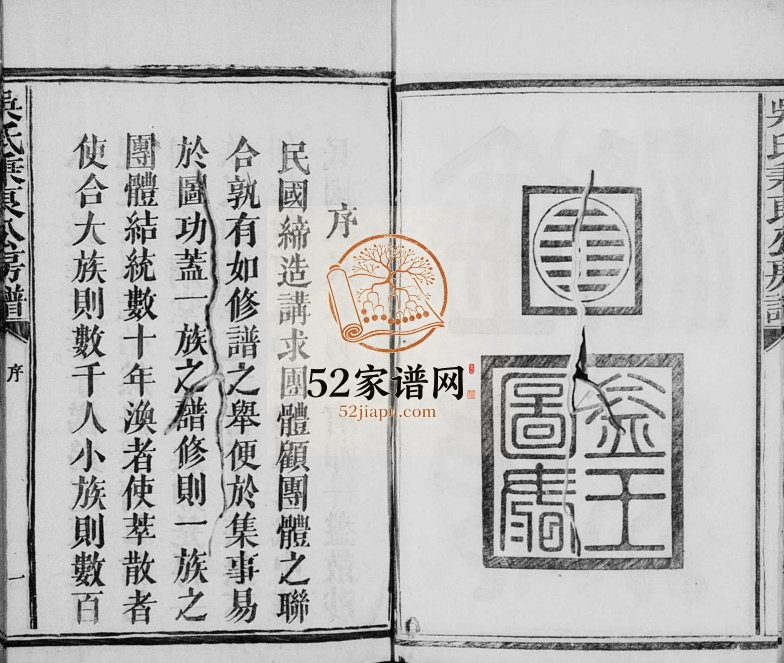 序
民國締造講求團體顧團體之聯
合孰有如修譜之舉便於集事易
於圖功蓋一族之譜修則一族之
團體結統數十年渙者使萃散者
使合大族則數千人小族則數百
吳氏秉良公房譜
序
一
52家谱网
52jiapu.com